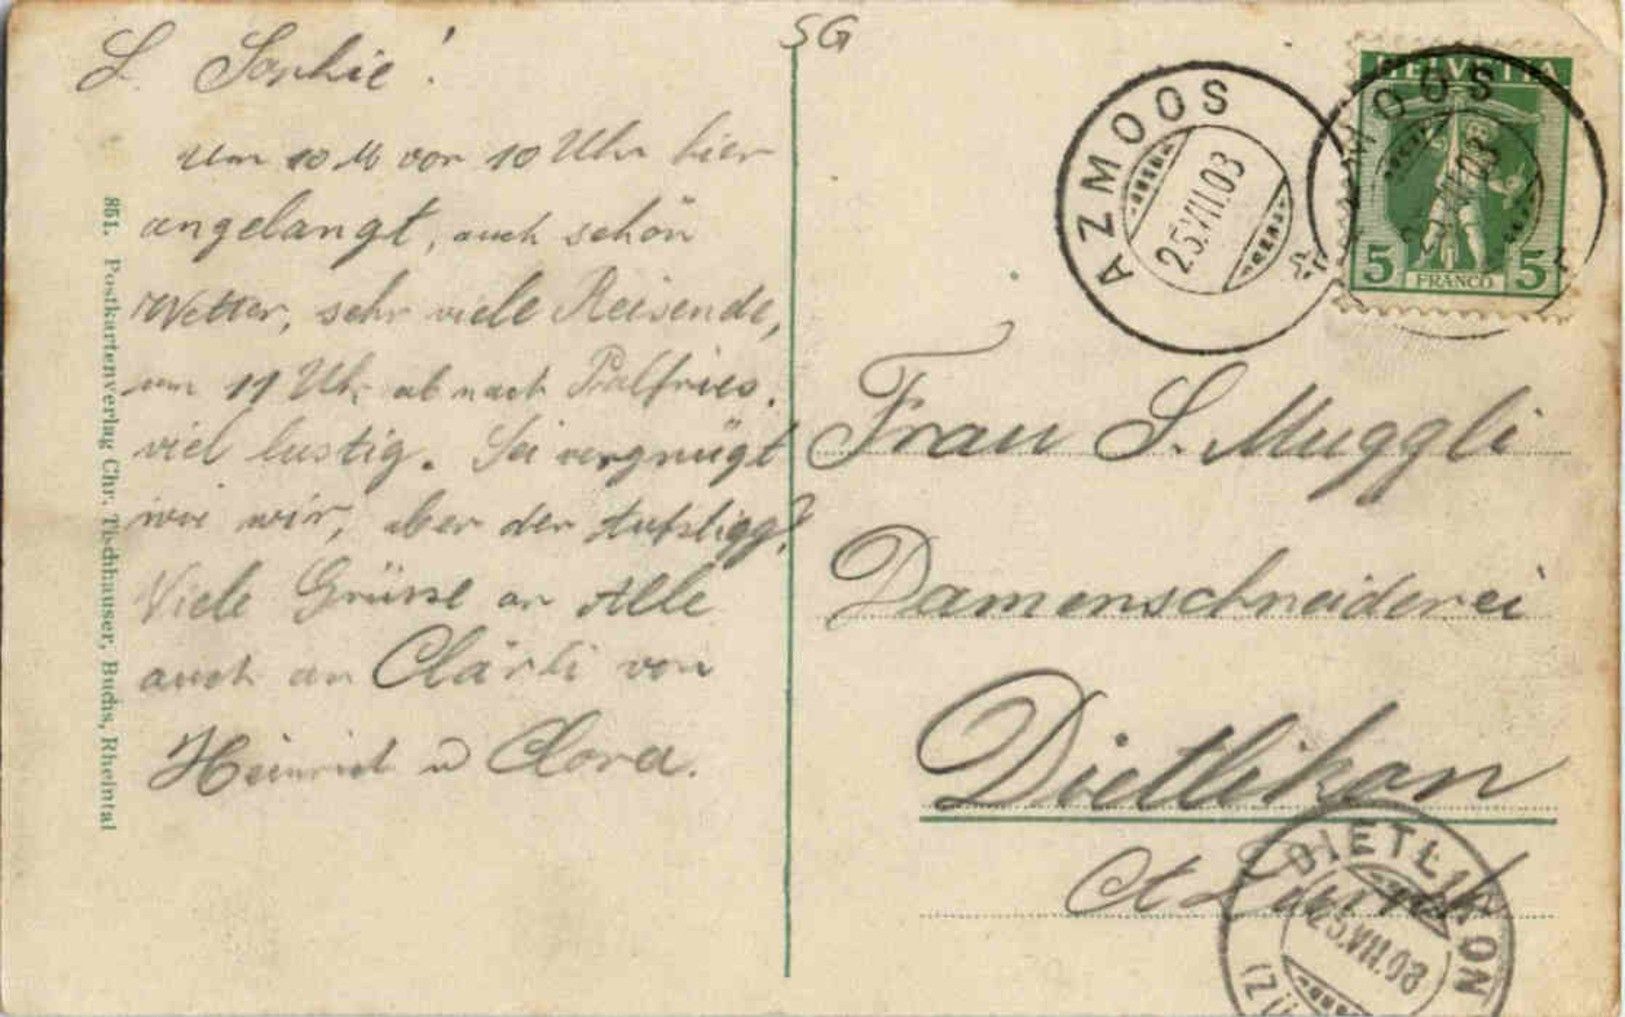 SG
L. Sophie!
um 10 M vor 10 Uhr hier
angelangt, auch schön
Wetter, sehr viele Reisende,
um 11 Uhr ab nach Palfries.
viel lustig. Sei vergnügt
wie wir, aber der
Viele Grüsse an Alle
auch an Clärli von
Heinrich u Clara.
851. Postkartenverlag Chr. Tischhauser, Buchs, Rheintal
AZMOOS
25.VII.08
HELVETIA
5 FRANCO 5
Frau S. Muggli
Damenschneiderei
Dietlikon
Ct Zürich
DIETLIKON
25.VII.08
(ZÜ